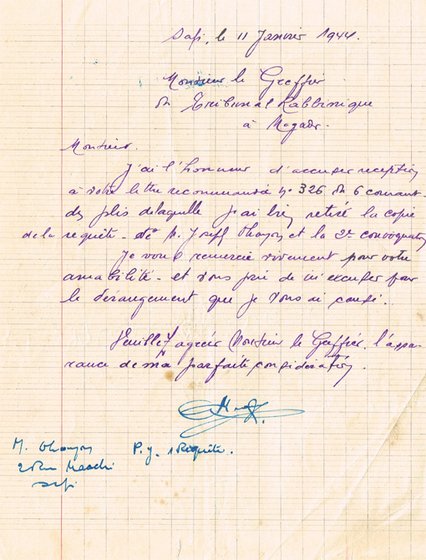 Safi, le 11 Janvier 1944.
Monsieur le Greffier
du Tribunal Rabbinique
à Mogador.
Monsieur.
J'ai l'honneur d'accuser reception
à votre lettre recommandée N° 326 du 6 courant
des plis delaquelle j'ai bien retiré la copie
de la requête. de M. Joseph Ohayon et la 2e convoquation
Je vous remercie vivement pour votre
amabilité. et vous prie de m'excuser pour
le derangement que je vous ai causé.
Veuillez agréer Monsieur le Greffier. l'assu-
rance de ma parfaite considération.
M. Ohayon P.j. 1 Requête.
2 Rue
Safi